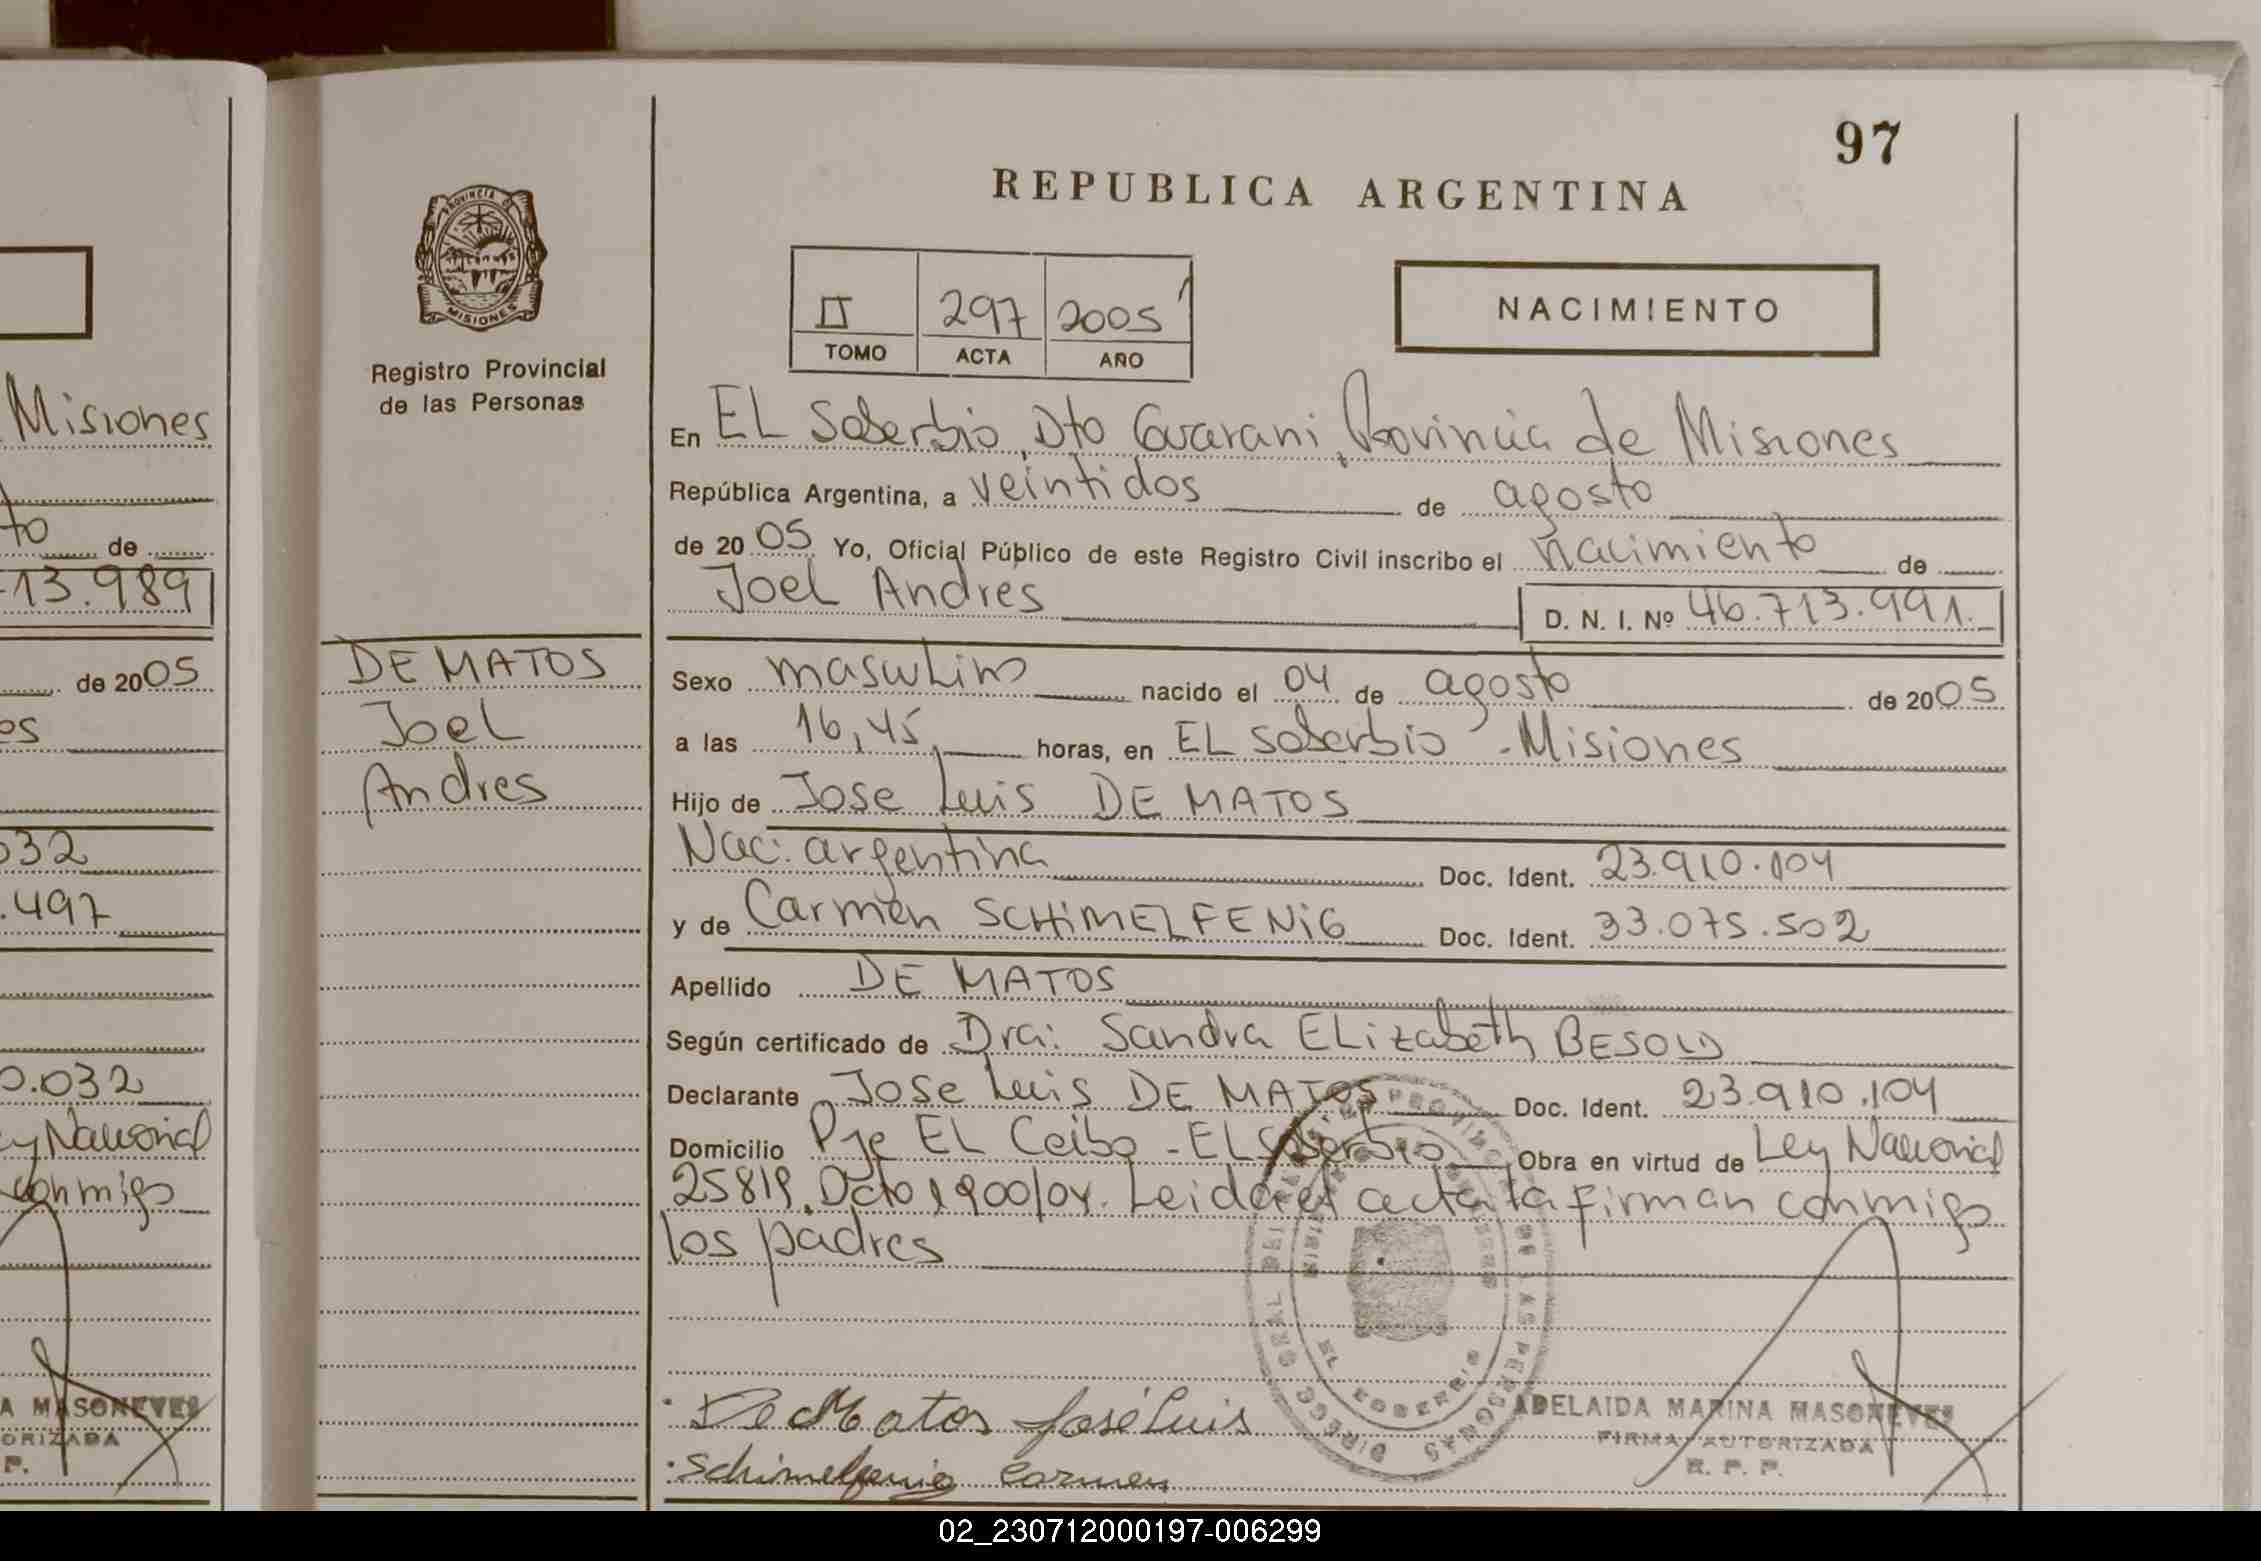 97
REPUBLICA ARGENTINA
PROVINCIA DE
MISIONES
Registro Provincial
de las Personas
II 297 2005
TOMO ACTA AÑO
NACIMIENTO
En EL Soberbio, Dto Guarani, Provincia de Misiones
República Argentina, a veintidos de agosto
de 2005 Yo, Oficial Público de este Registro Civil inscribo el nacimiento de
Joel Andres D. N. I. Nº 46.713.991.
DE MATOS
Joel
Andres
Sexo masculino nacido el 04 de agosto de 2005
a las 16,45 horas, en EL Soberbio - Misiones
Hijo de Jose Luis DE MATOS
Nac: argentina Doc. Ident. 23.910.104
y de Carmen SCHIMELFENIG Doc. Ident. 33.075.502
Apellido DE MATOS
Según certificado de Dra: Sandra ELizabeth BESOLD
Declarante Jose Luis DE MATOS Doc. Ident. 23.910.104
Domicilio Pje EL Ceibo - EL Soberbio Obra en virtud de Ley Nacional
25819, Dcto 1900/04. Leida el acta la firman conmigo
los padres
De Matos José Luis
Schimelfenig Carmen
ADELAIDA MARINA MASONEVES
FIRMA AUTORIZADA
R. P. P.
Misiones
to de
13.989
de 2005
es
032
.497
0.032
ey Nacional
conmigo
A MASONEVES
ORIZADA
P.
DIRECC GRAL DEL REGISTRO PROVINCIAL DE LAS PERSONAS
EL SOBERBIO
02_230712000197-006299